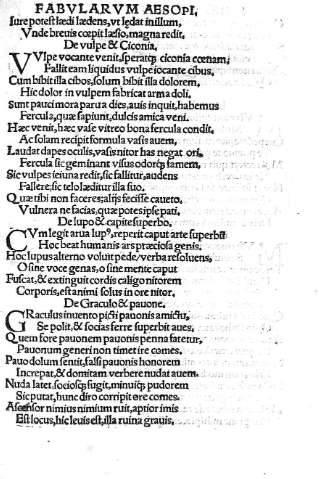 FABVLARVM AESOPI,
Iure potest lædi lædens, vt lędat in illum,
Vnde breuis cœpit læsio, magna redit.
De vulpe & Ciconia,
VVlpe vocante venit, speratq; ciconia cœnam;
Fallit eam liquidus vulpe iocante cibus,
Cum bibit illa cibos, solum bibit illa dolorem,
Hic dolor in vulpem fabricat arma doli.
Sunt pauci mora parua dies, auis inquit, habemus
Fercula, quæ sapiunt, dulcis amica veni.
Hæc venit, hæc vase vitreo bona fercula condit,
Ac solam recipit formula vasis auem,
Laudat dapes oculis, vasis nitor has negat ori,
Fercula sic geminant visus odorq; famem,
Sic vulpes ieiuna redit, sic fallitur, audens
Fallere, sic telo læditur illa suo.
Quæ tibi non faceres, alijs fecisse caueto,
Vulnera ne facias, quæ potes ipse pati,
De lupo & capite superbo.
CVm legit arua lupꝰ, reperit caput arte superbū
Hoc beat humanis ars præciosa genis.
Hoc lupus alterno voluit pede, verba resoluens,
O sine voce genas, o sine mente caput
Fuscat, & extinguit cordis caligo nitorem
Corporis, est animi solus in ore nitor,
De Graculo & pauone.
GRaculus inuento picti pauonis amictu,
Se polit, & socias ferre superbit aues,
Quem fore pauonem pauonis penna fatetur,
Pauonum generi non timet ire comes.
Pauo dolum sentit, falsi pauonis honorem
Increpat, & domitam verbere nudat auem.
Nuda latet, sociosq; fugit, minuitq; pudorem
Sic putat, hunc diro corripit ore comes.
Ascensor nimius nimium ruit, aptior imis
Est locus, hic leuis est, illa ruina grauis,